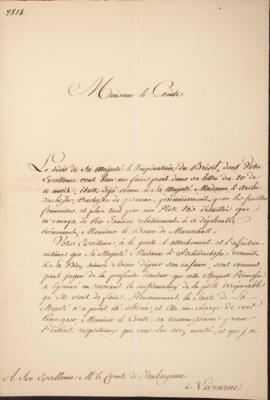 2814.
Monsieur le Comte
Le décès de Sa Majesté l'Impératrice du Brésil, dont Votre
Excellence veut bien me faire part dans sa lettre du 20 de
ce mois, était déjà connu à Sa Majesté Madame l'Archi-
duchesse, Duchesse de Parme, premièrement par les feuilles
françaises, et plus tard par une Note très détaillée que
lui envoya de Rio Janeiro relativement à ce déplorable
événement, Monsieur le Baron de Mareschall.
Votre Excellence, à qui l'attachement et l'affection
intimes que Sa Majesté Madame l'Archiduchesse, vouait
à Sa Bien aimée Soeur depuis son enfance, sont connus
peut juger de la profonde douleur que cette Auguste Princesse
a éprouvé en recevant la confirmation de la perte irréparable
qu'Elle vient de faire. Heureusement la Santé de Sa
Majesté n'a point été altérée, et Elle me charge de vous
témoigner Monsieur le Comte, sa reconnaissance, pour
l'intérêt respectueux que vous lui avez montré, et que j'ai
A Son Excellence M. le Comte de
à Livourne